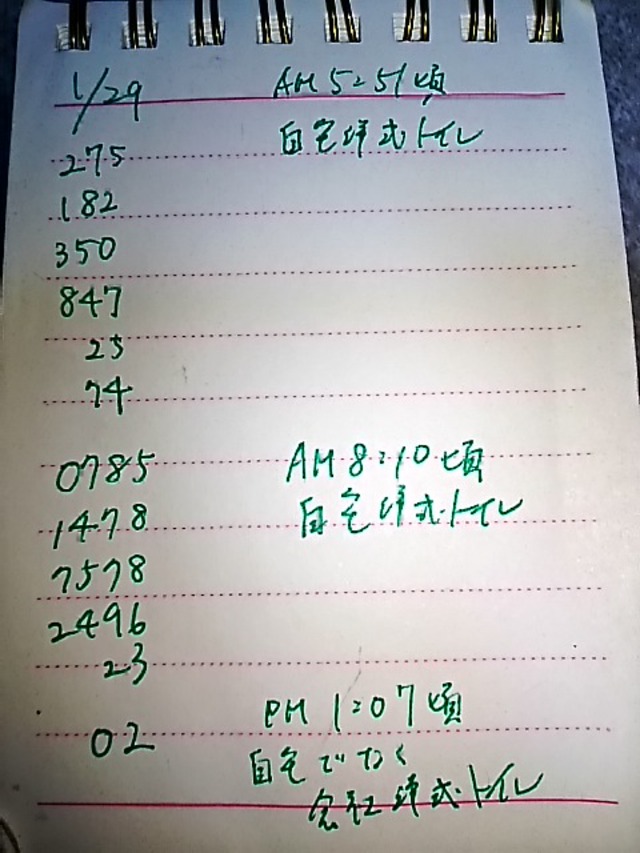 1/29 AM 5:51頃
自宅洋式トイレ
275
182
350
847
25
74
0785 AM 8:10頃
1478 自宅洋式トイレ
7578
2496
23
02 PM 1:07頃
自宅でなく
会社洋式トイレ